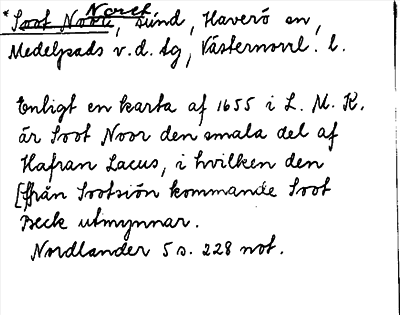 Noret
*Soot Noor, sund, Haverö sn,
Medelpads v. d. tg, Västernorrl. l.
Enligt en karta af 1655 i L. M. K.
är Soot Noor den smala del af
Hafran Lacus, i hvilken den
[från Sootsiön kommande Soot
Beck utmynnar.
Nordlander 5 s. 228 not.